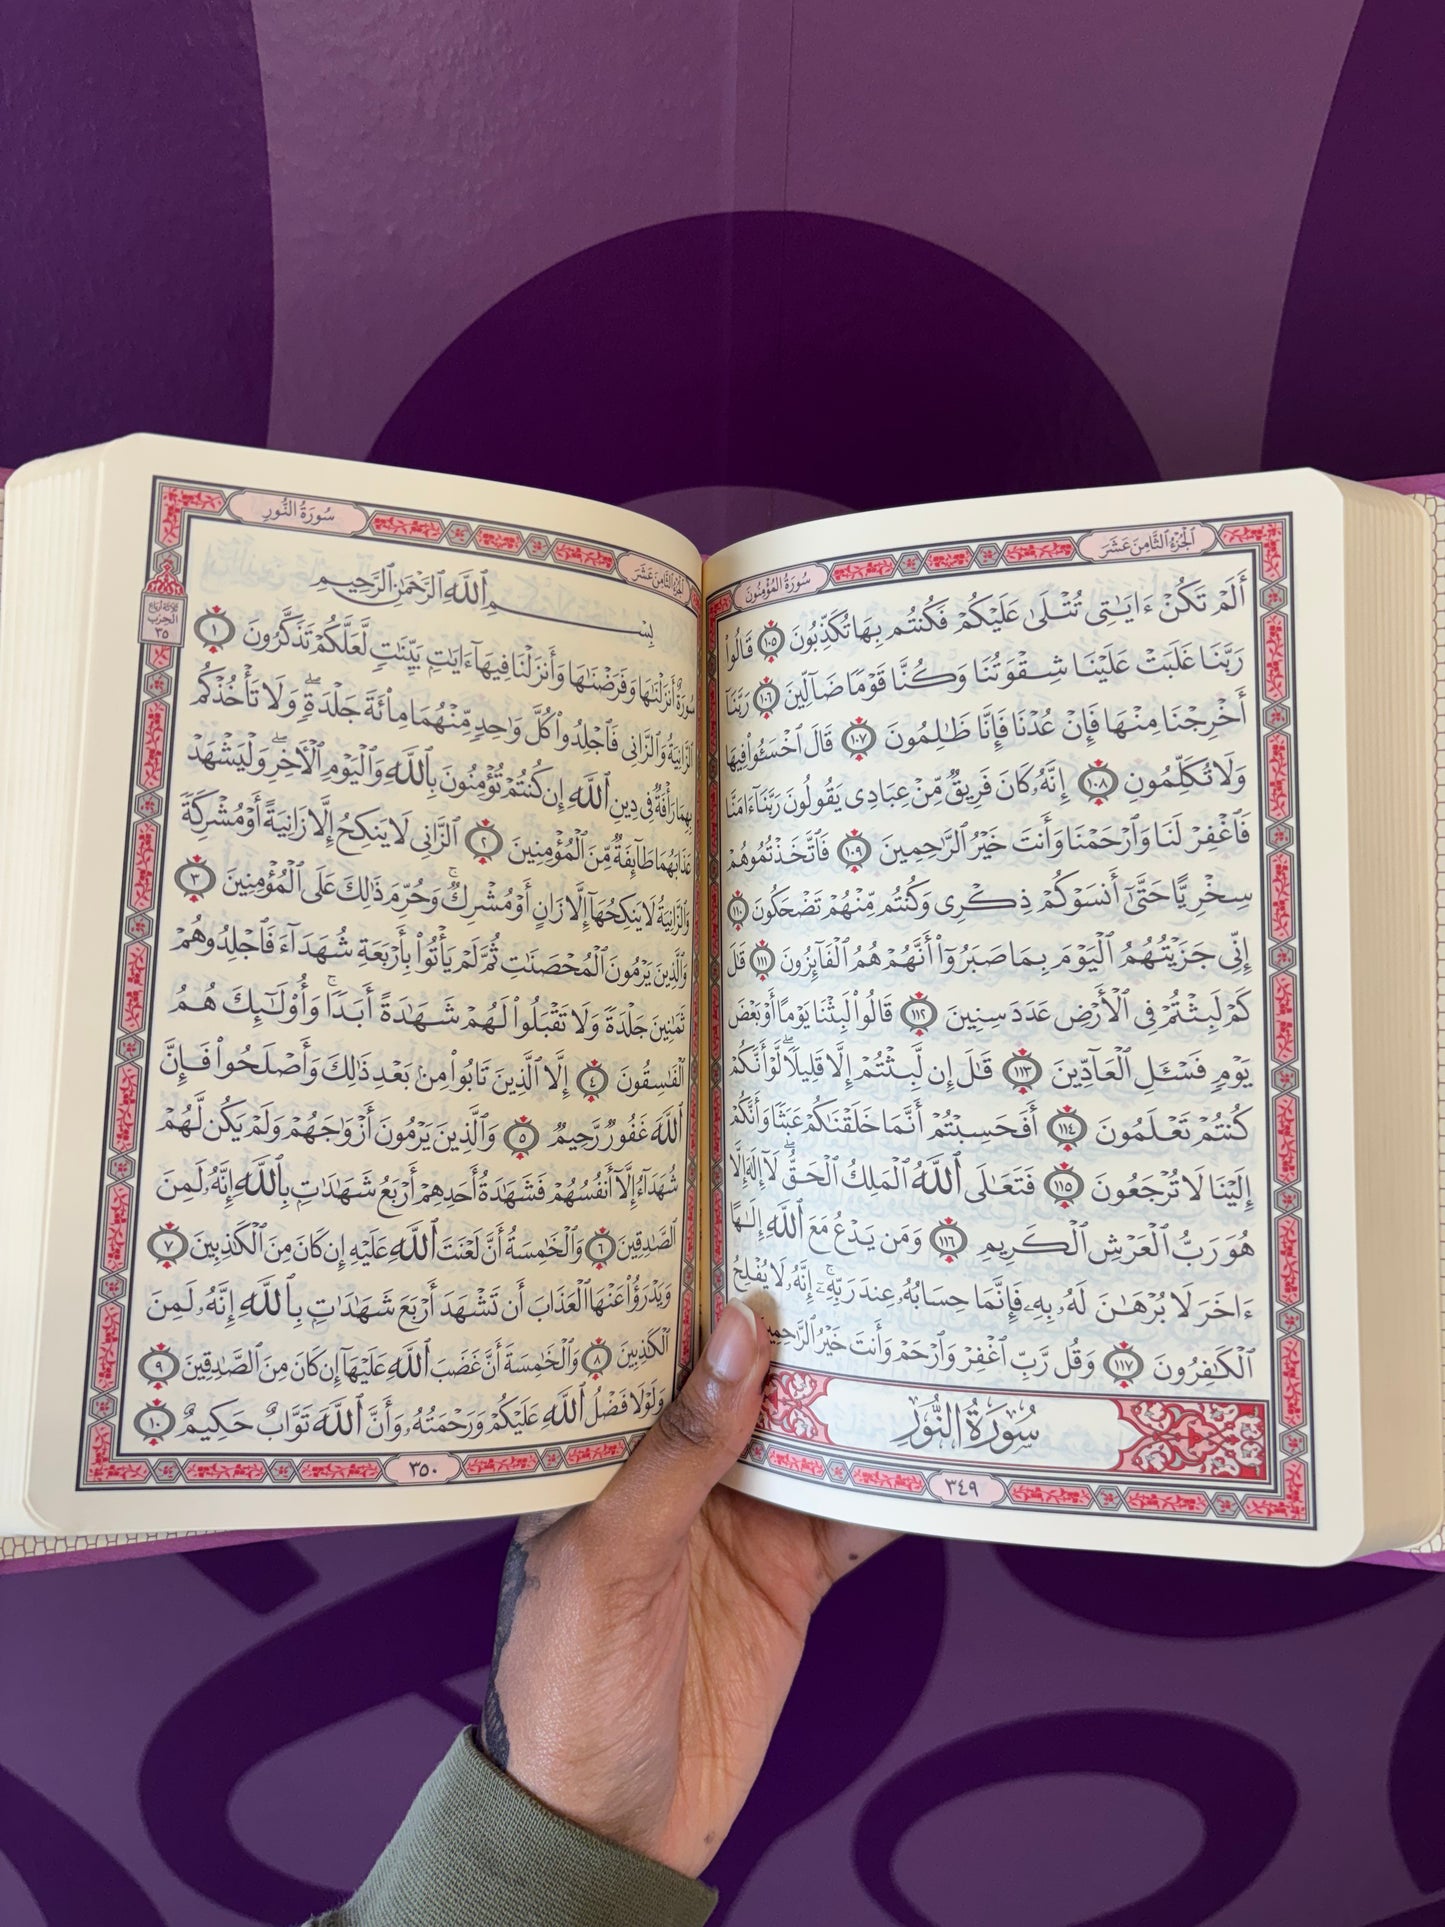 سُورَةُ المُؤْمِنُونَ
الجُزْءُ الثَّامِنَ عَشَرَ
أَلَمْ تَكُنْ ءَايَٰتِى تُتْلَىٰ عَلَيْكُمْ فَكُنتُم بِهَا تُكَذِّبُونَ ١٠٥ قَالُوا۟
رَبَّنَا غَلَبَتْ عَلَيْنَا شِقْوَتُنَا وَكُنَّا قَوْمًا ضَآلِّينَ ١٠٦ رَبَّنَآ
أَخْرِجْنَا مِنْهَا فَإِنْ عُدْنَا فَإِنَّا ظَٰلِمُونَ ١٠٧ قَالَ ٱخْسَـُٔوا۟ فِيهَا
وَلَا تُكَلِّمُونِ ١٠٨ إِنَّهُۥ كَانَ فَرِيقٌ مِّنْ عِبَادِى يَقُولُونَ رَبَّنَآ ءَامَنَّا
فَٱغْفِرْ لَنَا وَٱرْحَمْنَا وَأَنتَ خَيْرُ ٱلرَّٰحِمِينَ ١٠٩ فَٱتَّخَذْتُمُوهُمْ
سِخْرِيًّا حَتَّىٰٓ أَنسَوْكُمْ ذِكْرِى وَكُنتُم مِّنْهُمْ تَضْحَكُونَ ١١٠
إِنِّى جَزَيْتُهُمُ ٱلْيَوْمَ بِمَا صَبَرُوٓا۟ أَنَّهُمْ هُمُ ٱلْفَآئِزُونَ ١١١ قَٰلَ
كَمْ لَبِثْتُمْ فِى ٱلْأَرْضِ عَدَدَ سِنِينَ ١١٢ قَالُوا۟ لَبِثْنَا يَوْمًا أَوْ بَعْضَ
يَوْمٍ فَسْـَٔلِ ٱلْعَآدِّينَ ١١٣ قَٰلَ إِن لَّبِثْتُمْ إِلَّا قَلِيلًا ۖ لَّوْ أَنَّكُمْ
كُنتُمْ تَعْلَمُونَ ١١٤ أَفَحَسِبْتُمْ أَنَّمَا خَلَقْنَٰكُمْ عَبَثًا وَأَنَّكُمْ
إِلَيْنَا لَا تُرْجَعُونَ ١١٥ فَتَعَٰلَى ٱللَّهُ ٱلْمَلِكُ ٱلْحَقُّ ۖ لَآ إِلَٰهَ إِلَّا
هُوَ رَبُّ ٱلْعَرْشِ ٱلْكَرِيمِ ١١٦ وَمَن يَدْعُ مَعَ ٱللَّهِ إِلَٰهًا
ءَاخَرَ لَا بُرْهَٰنَ لَهُۥ بِهِۦ فَإِنَّمَا حِسَابُهُۥ عِندَ رَبِّهِۦٓ ۚ إِنَّهُۥ لَا يُفْلِحُ
ٱلْكَٰفِرُونَ ١١٧ وَقُل رَّبِّ ٱغْفِرْ وَٱرْحَمْ وَأَنتَ خَيْرُ ٱلرَّٰحِمِينَ
سُورَةُ النُّورِ
٣٤٩
سُورَةُ النُّورِ
الجُزْءُ الثَّامِنَ عَشَرَ
ثلاثة أرباع
الحزب
٣٥
بِسْمِ ٱللَّهِ ٱلرَّحْمَٰنِ ٱلرَّحِيمِ
سُورَةٌ أَنزَلْنَٰهَا وَفَرَضْنَٰهَا وَأَنزَلْنَا فِيهَآ ءَايَٰتٍۭ بَيِّنَٰتٍ لَّعَلَّكُمْ تَذَكَّرُونَ ١
ٱلزَّانِيَةُ وَٱلزَّانِى فَٱجْلِدُوا۟ كُلَّ وَٰحِدٍ مِّنْهُمَا مِا۟ئَةَ جَلْدَةٍ ۖ وَلَا تَأْخُذْكُم
بِهِمَا رَأْفَةٌ فِى دِينِ ٱللَّهِ إِن كُنتُمْ تُؤْمِنُونَ بِٱللَّهِ وَٱلْيَوْمِ ٱلْـَٔاخِرِ ۖ وَلْيَشْهَدْ
عَذَابَهُمَا طَآئِفَةٌ مِّنَ ٱلْمُؤْمِنِينَ ٢ ٱلزَّانِى لَا يَنكِحُ إِلَّا زَانِيَةً أَوْ مُشْرِكَةً
وَٱلزَّانِيَةُ لَا يَنكِحُهَآ إِلَّا زَانٍ أَوْ مُشْرِكٌ ۚ وَحُرِّمَ ذَٰلِكَ عَلَى ٱلْمُؤْمِنِينَ ٣
وَٱلَّذِينَ يَرْمُونَ ٱلْمُحْصَنَٰتِ ثُمَّ لَمْ يَأْتُوا۟ بِأَرْبَعَةِ شُهَدَآءَ فَٱجْلِدُوهُمْ
ثَمَٰنِينَ جَلْدَةً وَلَا تَقْبَلُوا۟ لَهُمْ شَهَٰدَةً أَبَدًا ۚ وَأُو۟لَٰٓئِكَ هُمُ
ٱلْفَٰسِقُونَ ٤ إِلَّا ٱلَّذِينَ تَابُوا۟ مِنۢ بَعْدِ ذَٰلِكَ وَأَصْلَحُوا۟ فَإِنَّ
ٱللَّهَ غَفُورٌ رَّحِيمٌ ٥ وَٱلَّذِينَ يَرْمُونَ أَزْوَٰجَهُمْ وَلَمْ يَكُن لَّهُمْ
شُهَدَآءُ إِلَّآ أَنفُسُهُمْ فَشَهَٰدَةُ أَحَدِهِمْ أَرْبَعُ شَهَٰدَٰتٍۭ بِٱللَّهِ إِنَّهُۥ لَمِنَ
ٱلصَّٰدِقِينَ ٦ وَٱلْخَٰمِسَةُ أَنَّ لَعْنَتَ ٱللَّهِ عَلَيْهِ إِن كَانَ مِنَ ٱلْكَٰذِبِينَ ٧
وَيَدْرَؤُا۟ عَنْهَا ٱلْعَذَابَ أَن تَشْهَدَ أَرْبَعَ شَهَٰدَٰتٍۭ بِٱللَّهِ إِنَّهُۥ لَمِنَ
ٱلْكَٰذِبِينَ ٨ وَٱلْخَٰمِسَةَ أَنَّ غَضَبَ ٱللَّهِ عَلَيْهَآ إِن كَانَ مِنَ ٱلصَّٰدِقِينَ ٩
وَلَوْلَا فَضْلُ ٱللَّهِ عَلَيْكُمْ وَرَحْمَتُهُۥ وَأَنَّ ٱللَّهَ تَوَّابٌ حَكِيمٌ ١٠
٣٥٠